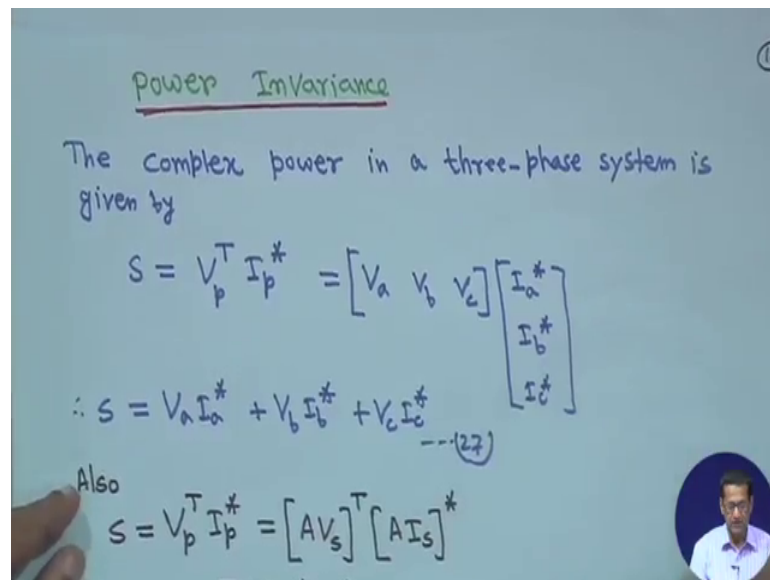 Power Invariance
The complex power in a three-phase system is
given by
S = V_p^T I_p^* = [V_a V_b V_c] [I_a^* I_b^* I_c^*]
∴ S = V_a I_a^* + V_b I_b^* + V_c I_c^*
---(27)
Also
S = V_p^T I_p^* = [AV_s]^T [AI_s]^*